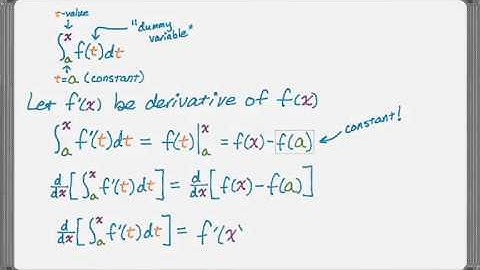 t-value
∫ₐˣ f(t)dt
"dummy variable"
t=a (constant)
Let f'(x) be derivative of f(x)
∫ₐˣ f'(t)dt = f(t)|ₐˣ = f(x)-f(a)
constant!
d/dx[∫ₐˣ f'(t)dt] = d/dx[f(x)-f(a)]
d/dx[∫ₐˣ f'(t)dt] = f'(x